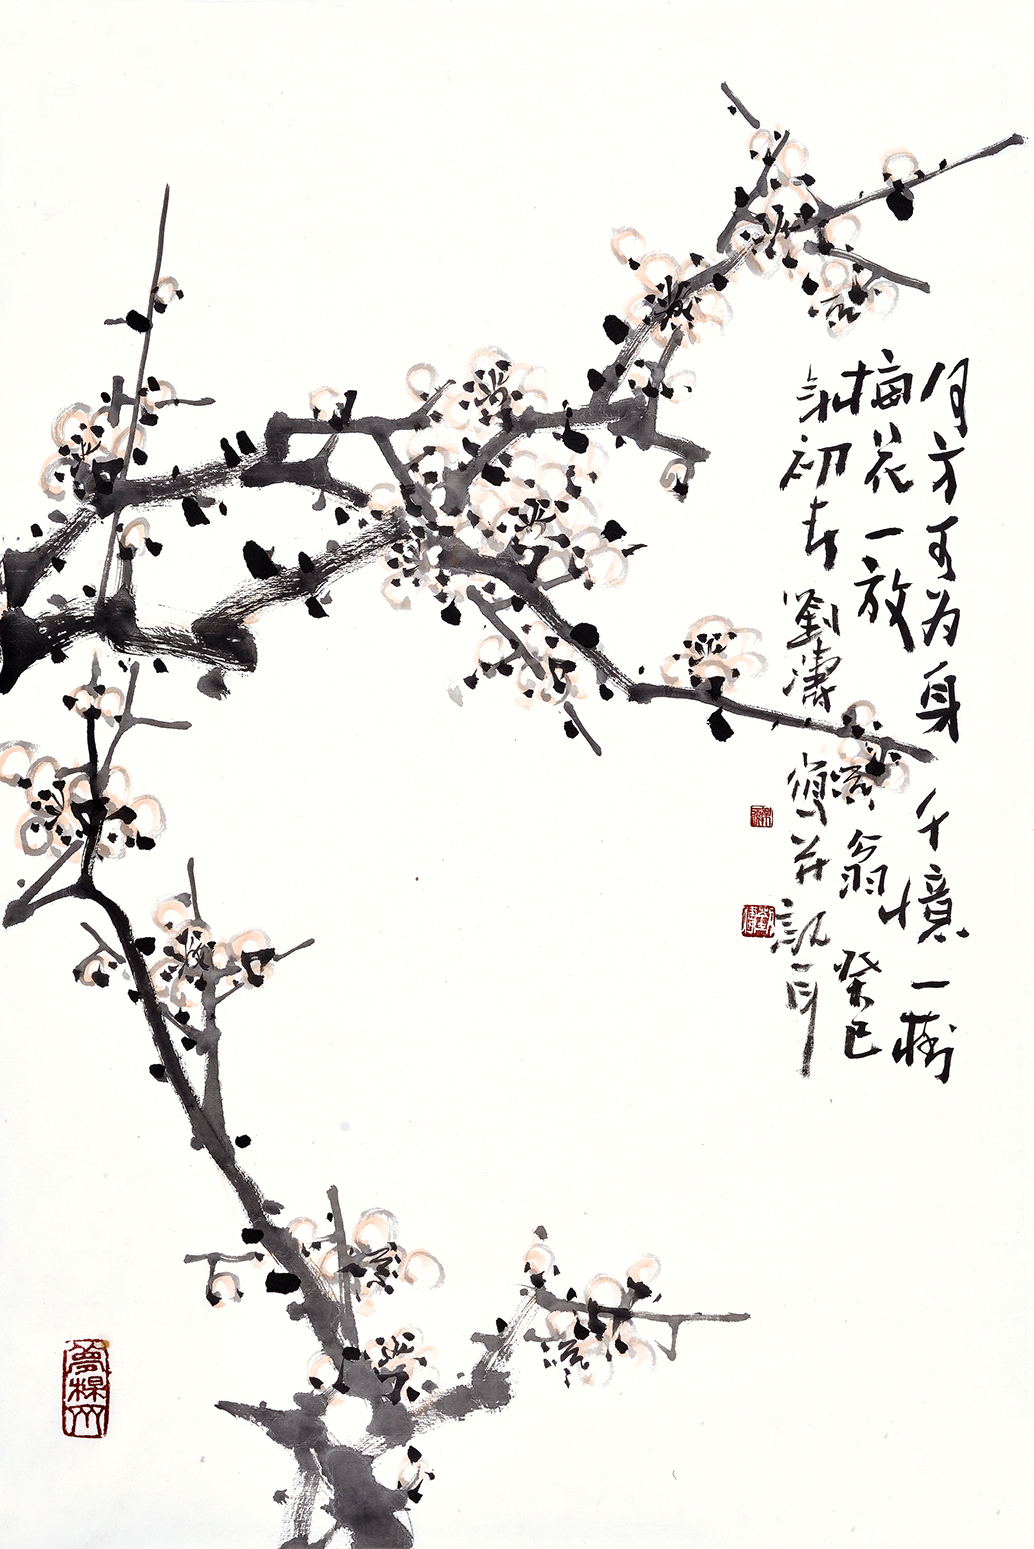 何方可为身千憶一樹
梅花一放翁癸巳
初春劉濤寫并記耳
劉濤